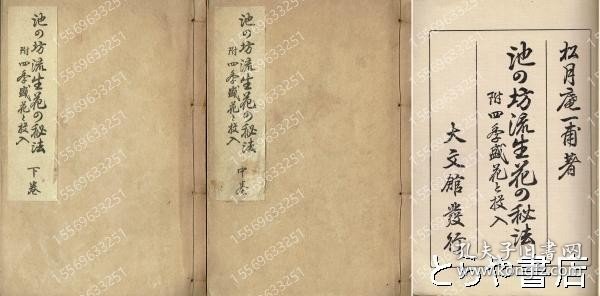 池の坊流生花の秘法
附四季盛花と投入
下巻
池の坊流生花の秘法
附四季盛花と投入
中巻
松月庵一甫著
池の坊流生花の秘法
附四季盛花と投入
大文館發行
15569633251
孔夫子旧书网
www.kongfz.com
とらや書店